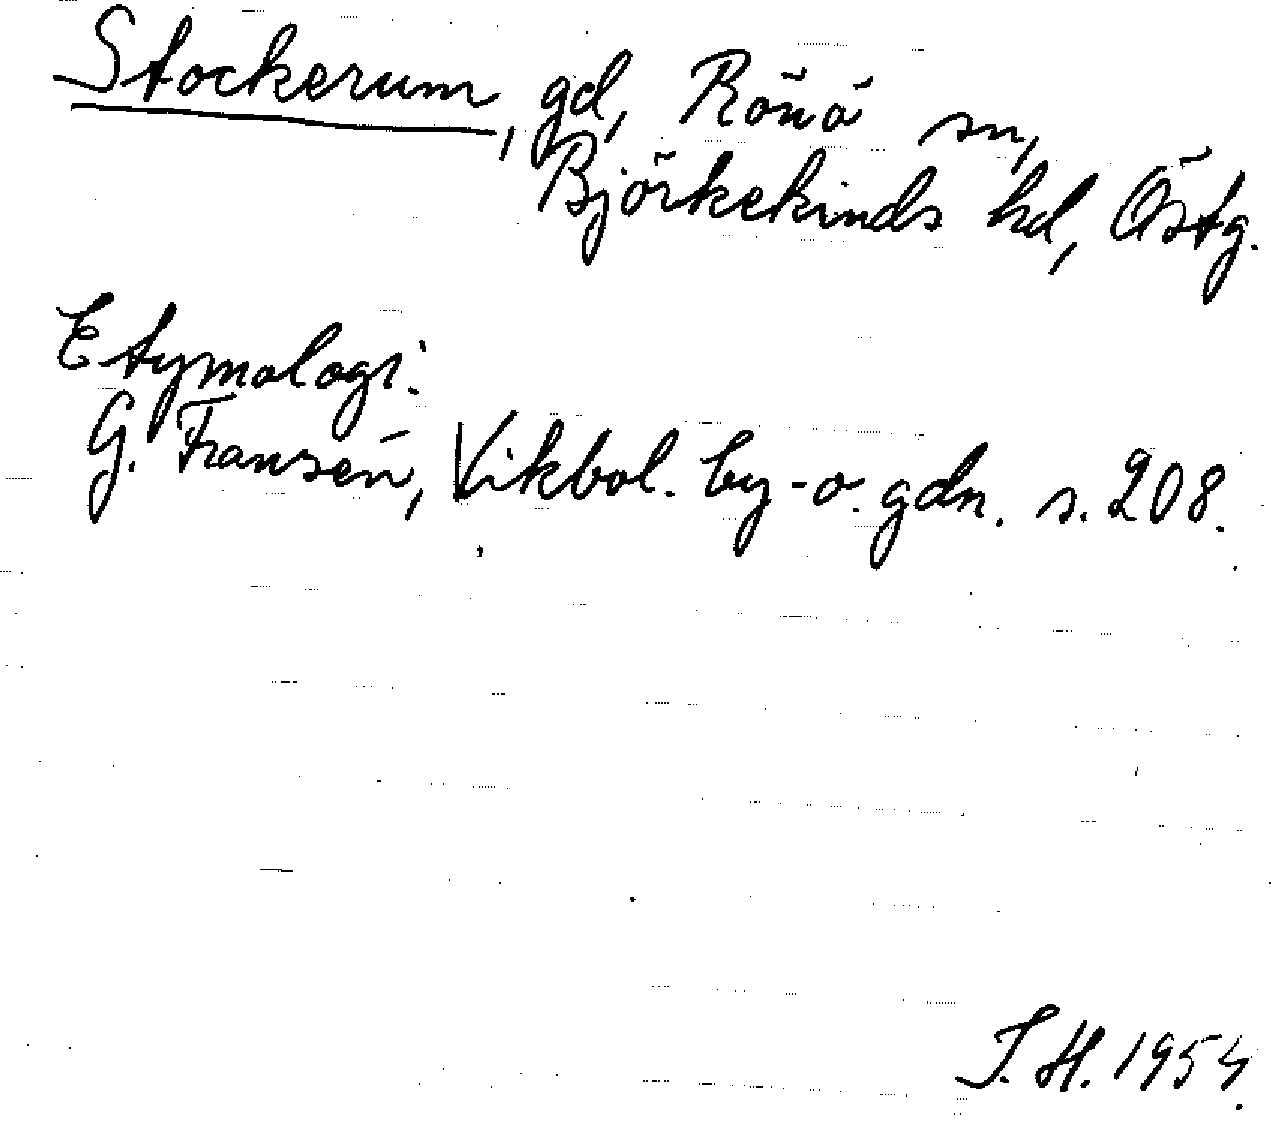 Stockerum, gd, Rönö sn,
Björkekinds hd, Östg.
Etymologi:
G. Fransén, Vikbol. by- o. gdn. s. 208.
J. H. 1954.